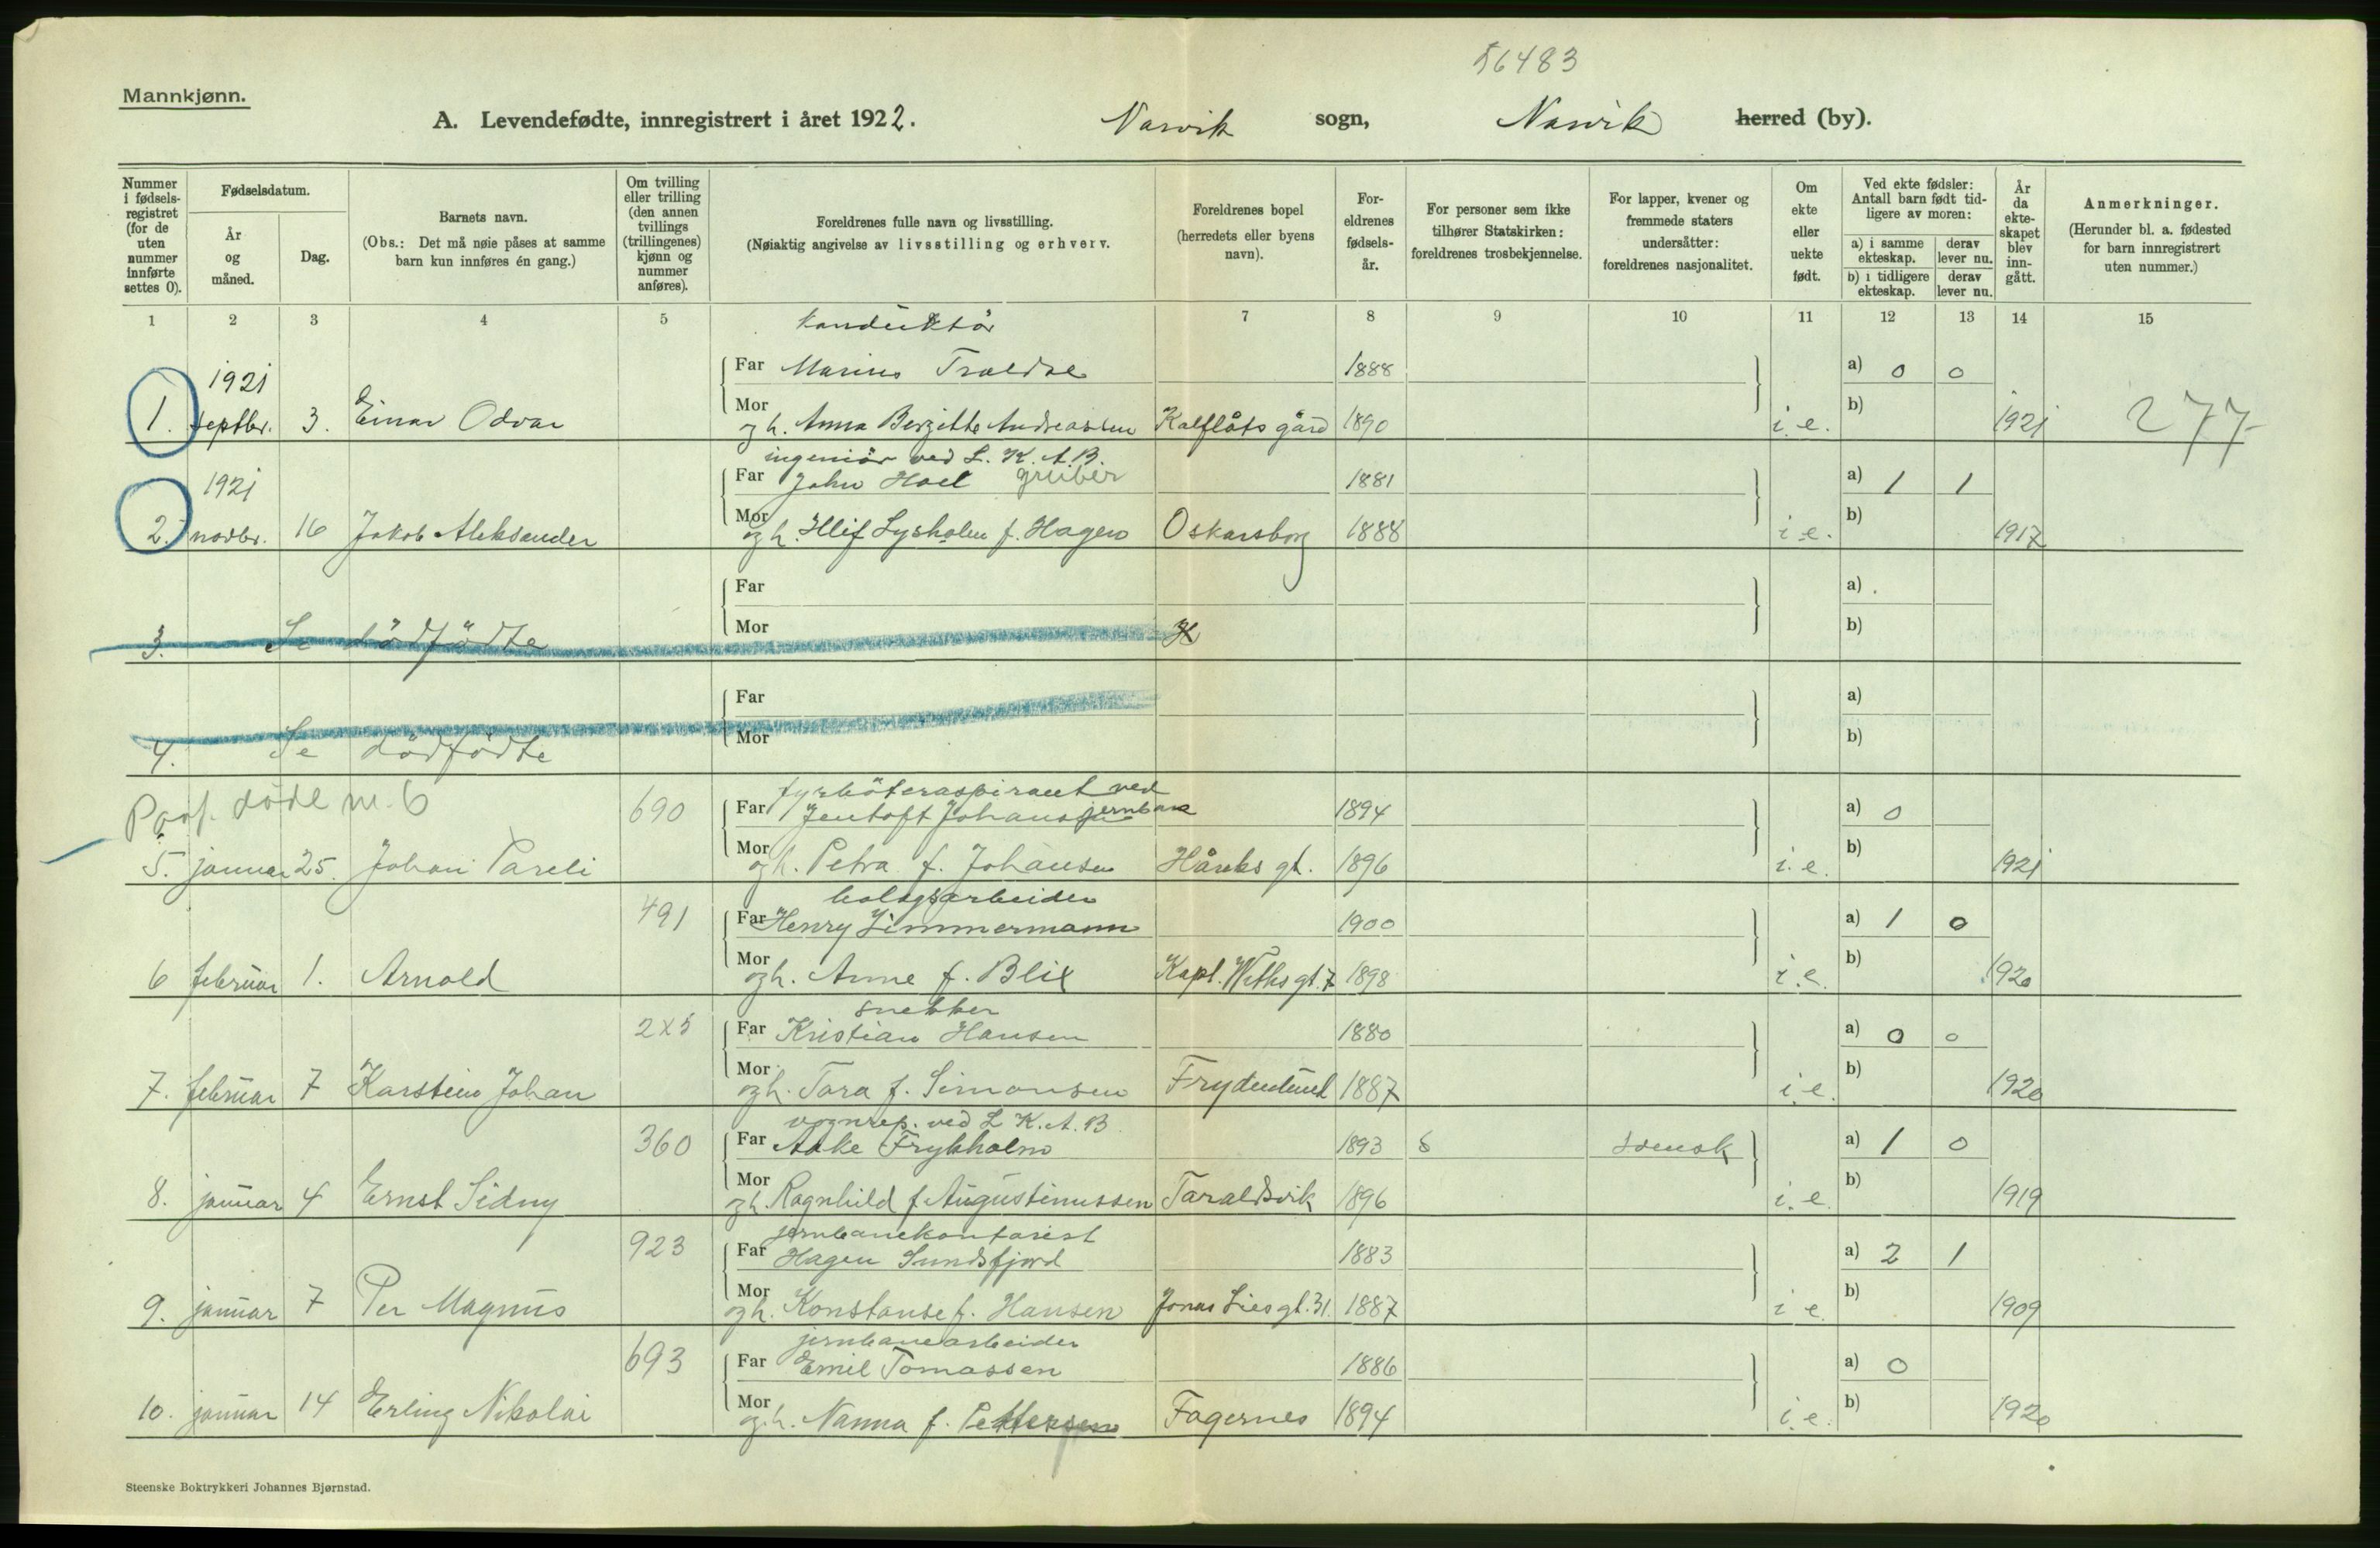 56483
Mannkjønn.
A. Levendefødte, innregistrert i året 1922. Narvik sogn, Narvik herred (by).
Nummer i fødselsregistret (for de uten nummer innførte settes 0).
Fødselsdatum.
År og måned.
Dag.
Barnets navn.
(Obs.: Det må nøie påses at samme barn kun innføres én gang.)
Om tvilling eller trilling (den annen tvillings (trillingenes) kjønn og nummer anføres).
Foreldrenes fulle navn og livsstilling.
(Nøiaktig angivelse av livsstilling og erhverv.
Foreldrenes bopel (herredets eller byens navn).
Foreldrenes fødselsår.
For personer som ikke tilhører Statskirken: foreldrenes trosbekjennelse.
For lapper, kvener og fremmede staters undersåtter: foreldrenes nasjonalitet.
Om ekte eller uekte født.
Ved ekte fødsler: Antall barn født tidligere av moren:
a) i samme ekteskap. derav lever nu.
b) i tidligere ekteskap. derav lever nu.
År da ekteskapet blev inngått.
Anmerkninger.
(Herunder bl. a. fødested for barn innregistrert uten nummer.)
1 2 3 4 5 7 8 9 10 11 12 13 14 15
konduktör
1921 Far Marius Traldal 1888 a) 0 0
1. septbr. 3. Einar Odvar Mor og h. Anna Bergitte Andreassen Kalflåts gård 1890 i.e. b) 1921 277
ingeniör ved L. K. A. B.
1921 Far John Hoel gruber 1881 a) 1 1
2. novbr. 16 Jakob Aleksander Mor og h. Lysholm f. Hagen Oskarsborg 1888 i.e. b) 1917
Far a)
3. Se dödfödte Mor b)
Far a)
4. Se dödfödte Mor b)
fyrböteraspirant ved
døde nr. 6 690 Far Jentoft Johansen jernbane 1894 a) 0
5. januar 25. Johan Pareli Mor og h. Petra f. Johansen Håreks gt. 1896 i.e. b) 1921
bolagsarbeider
491 Far Henry Zimmermann 1900 a) 1 0
6 februar 1. Arnold Mor og h. Anne f. Blix Kapt. Withs gt. 7 1898 i.e. b) 1920
snekker
2x5 Far Kristian Hansen 1880 a) 0 0
7. februar 7 Karstein Johan Mor og h. Tora f. Simonsen Frydenlund 1887 i.e. b) 1920
vognrep. ved L. K. A. B.
360 Far Aake Frykholm 1893 svensk a) 1 0
8. januar 4 Ernst Sidny Mor og h. Ragnhild f. Augustinussen Taraldsvik 1896 i.e. b) 1919
jernbanekontorist
923 Far Hagen Sundsfjord 1883 a) 2 1
9. januar 7 Per Magnus Mor og h. Konstanse f. Hansen Jonas Lies gt. 31. 1887 i.e. b) 1909
jernbanearbeider
693 Far Emil Tomassen 1886 a) 0
10. januar 14 Erling Nikolai Mor og h. Nanna f. Pettersen Fagernes 1894 i.e. b) 1920
Steenske Boktrykkeri Johannes Bjørnstad.